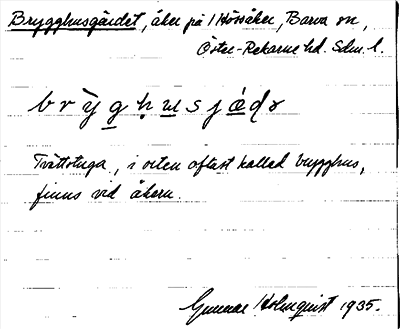 Brygghusgärdet, åker på 1 Hössåker, Barva sn,
Öster-Rekarne hd. Sdm. l.
Tvättstuga, i orten oftast kallad brygghus,
finns vid åkern.
Gunnar Holmquist 1935.